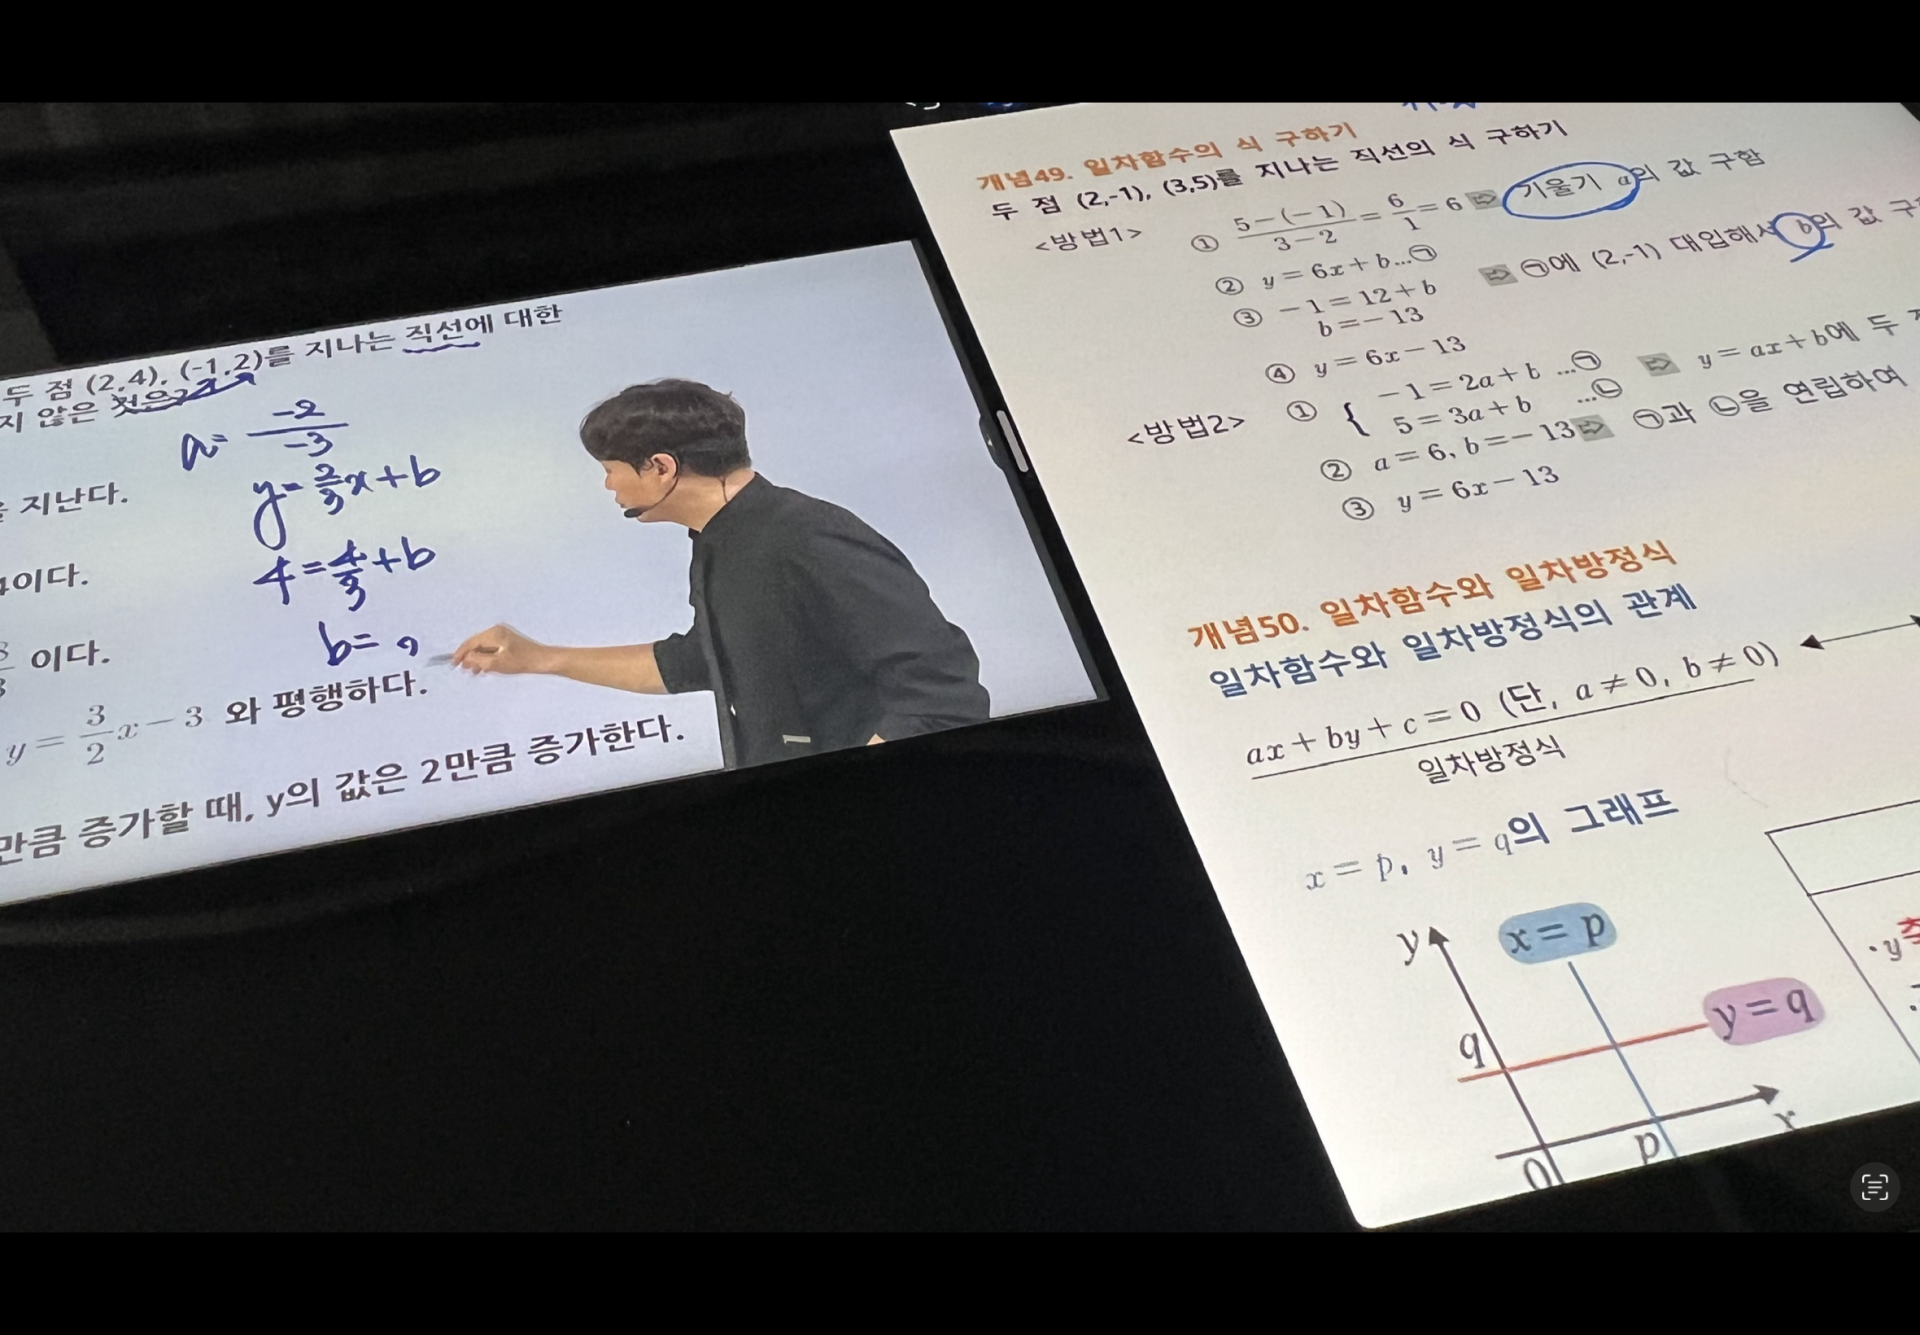 두 점 (2,4), (-1,2)를 지나는 직선에 대한
지 않은 것은?
a= -2/-3
y=2/3x+b
지난다.
4=4/3+b
이다.
b=
이다.
y=3/2x-3 와 평행하다.
만큼 증가할 때, y의 값은 2만큼 증가한다.
개념49. 일차함수의 식 구하기
두 점 (2,-1), (3,5)를 지나는 직선의 식 구하기
<방법1> ① 5-(-1)/3-2=6/1=6 ⇨ 기울기 a의 값 구함
② y=6x+b...㉠
③ -1=12+b ⇨ ㉠에 (2,-1) 대입해서 b의 값
b=-13
④ y=6x-13
<방법2> ① { -1=2a+b ...㉠ ⇨ y=ax+b에 두
5=3a+b ...㉡
② a=6, b=-13 ⇨ ㉠과 ㉡을 연립하여
③ y=6x-13
개념50. 일차함수와 일차방정식
일차함수와 일차방정식의 관계
ax+by+c=0 (단, a≠0, b≠0)
일차방정식
x=p, y=q의 그래프
y
x=p
y=q
q
·y
O
p
x